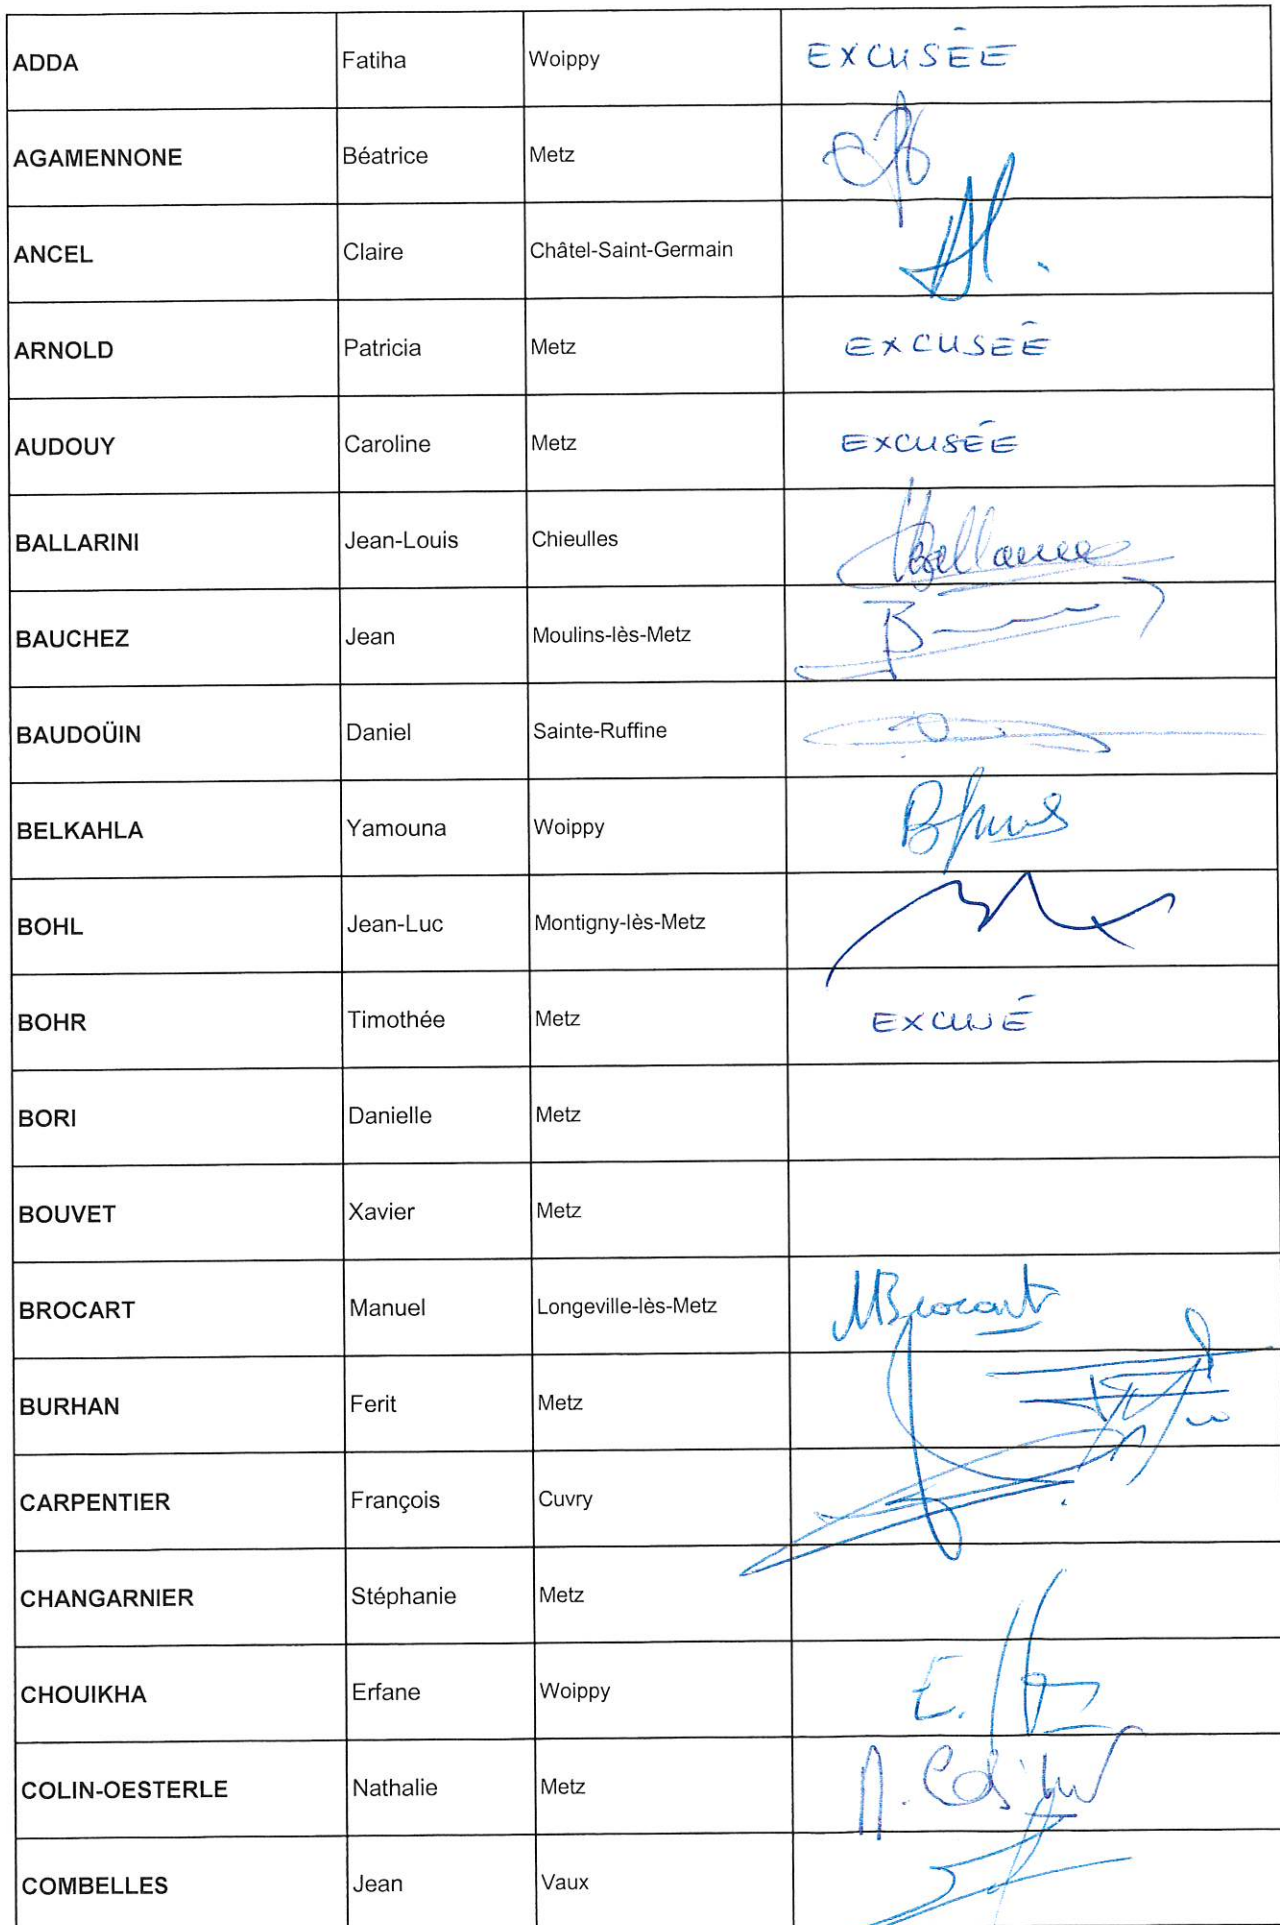 ADDA Fatiha Woippy EXCUSÉE
AGAMENNONE Béatrice Metz
ANCEL Claire Châtel-Saint-Germain
ARNOLD Patricia Metz EXCUSÉE
AUDOUY Caroline Metz EXCUSÉE
BALLARINI Jean-Louis Chieulles
BAUCHEZ Jean Moulins-lès-Metz
BAUDOÜIN Daniel Sainte-Ruffine
BELKAHLA Yamouna Woippy
BOHL Jean-Luc Montigny-lès-Metz
BOHR Timothée Metz EXCUSÉ
BORI Danielle Metz
BOUVET Xavier Metz
BROCART Manuel Longeville-lès-Metz MBrocart
BURHAN Ferit Metz
CARPENTIER François Cuvry
CHANGARNIER Stéphanie Metz
CHOUIKHA Erfane Woippy
COLIN-OESTERLE Nathalie Metz
COMBELLES Jean Vaux